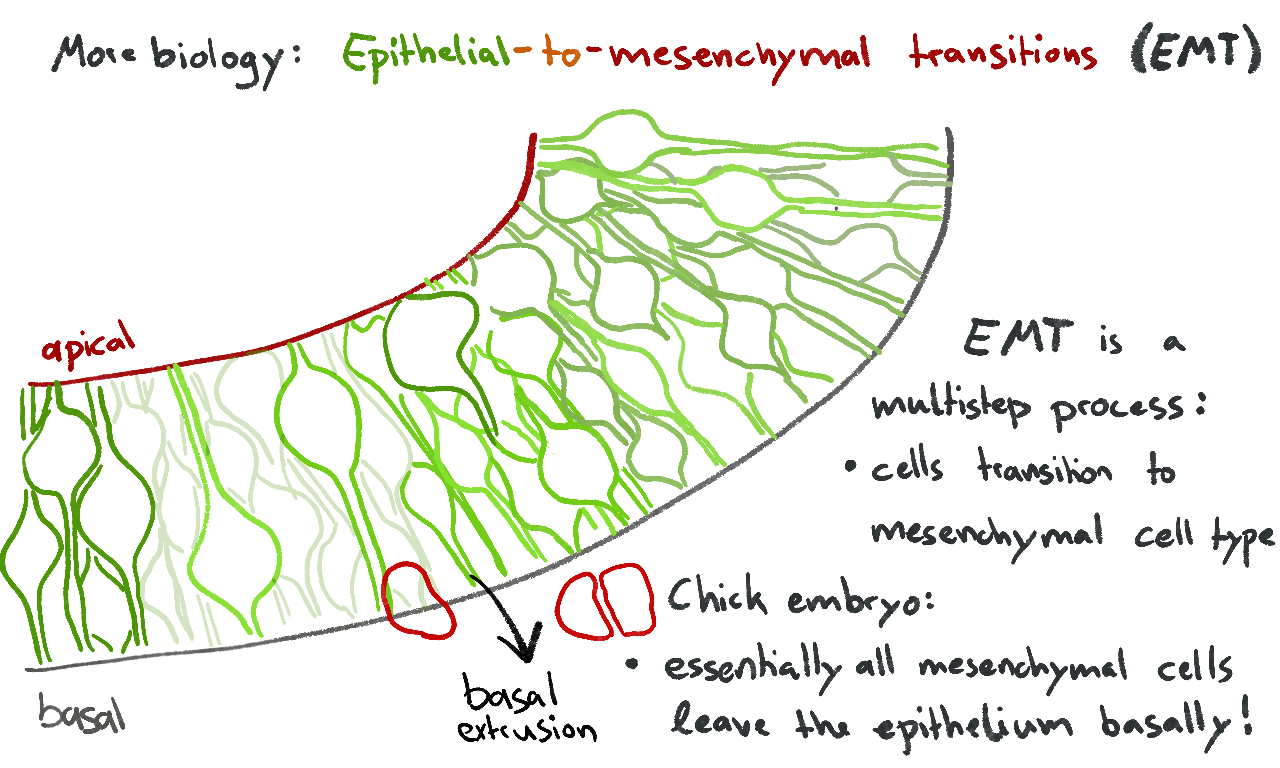 More biology: Epithelial-to-mesenchymal transitions (EMT)
apical
EMT is a
multistep process:
• cells transition to
mesenchymal cell type
Chick embryo:
• essentially all mesenchymal cells
leave the epithelium basally!
basal
extrusion
basal